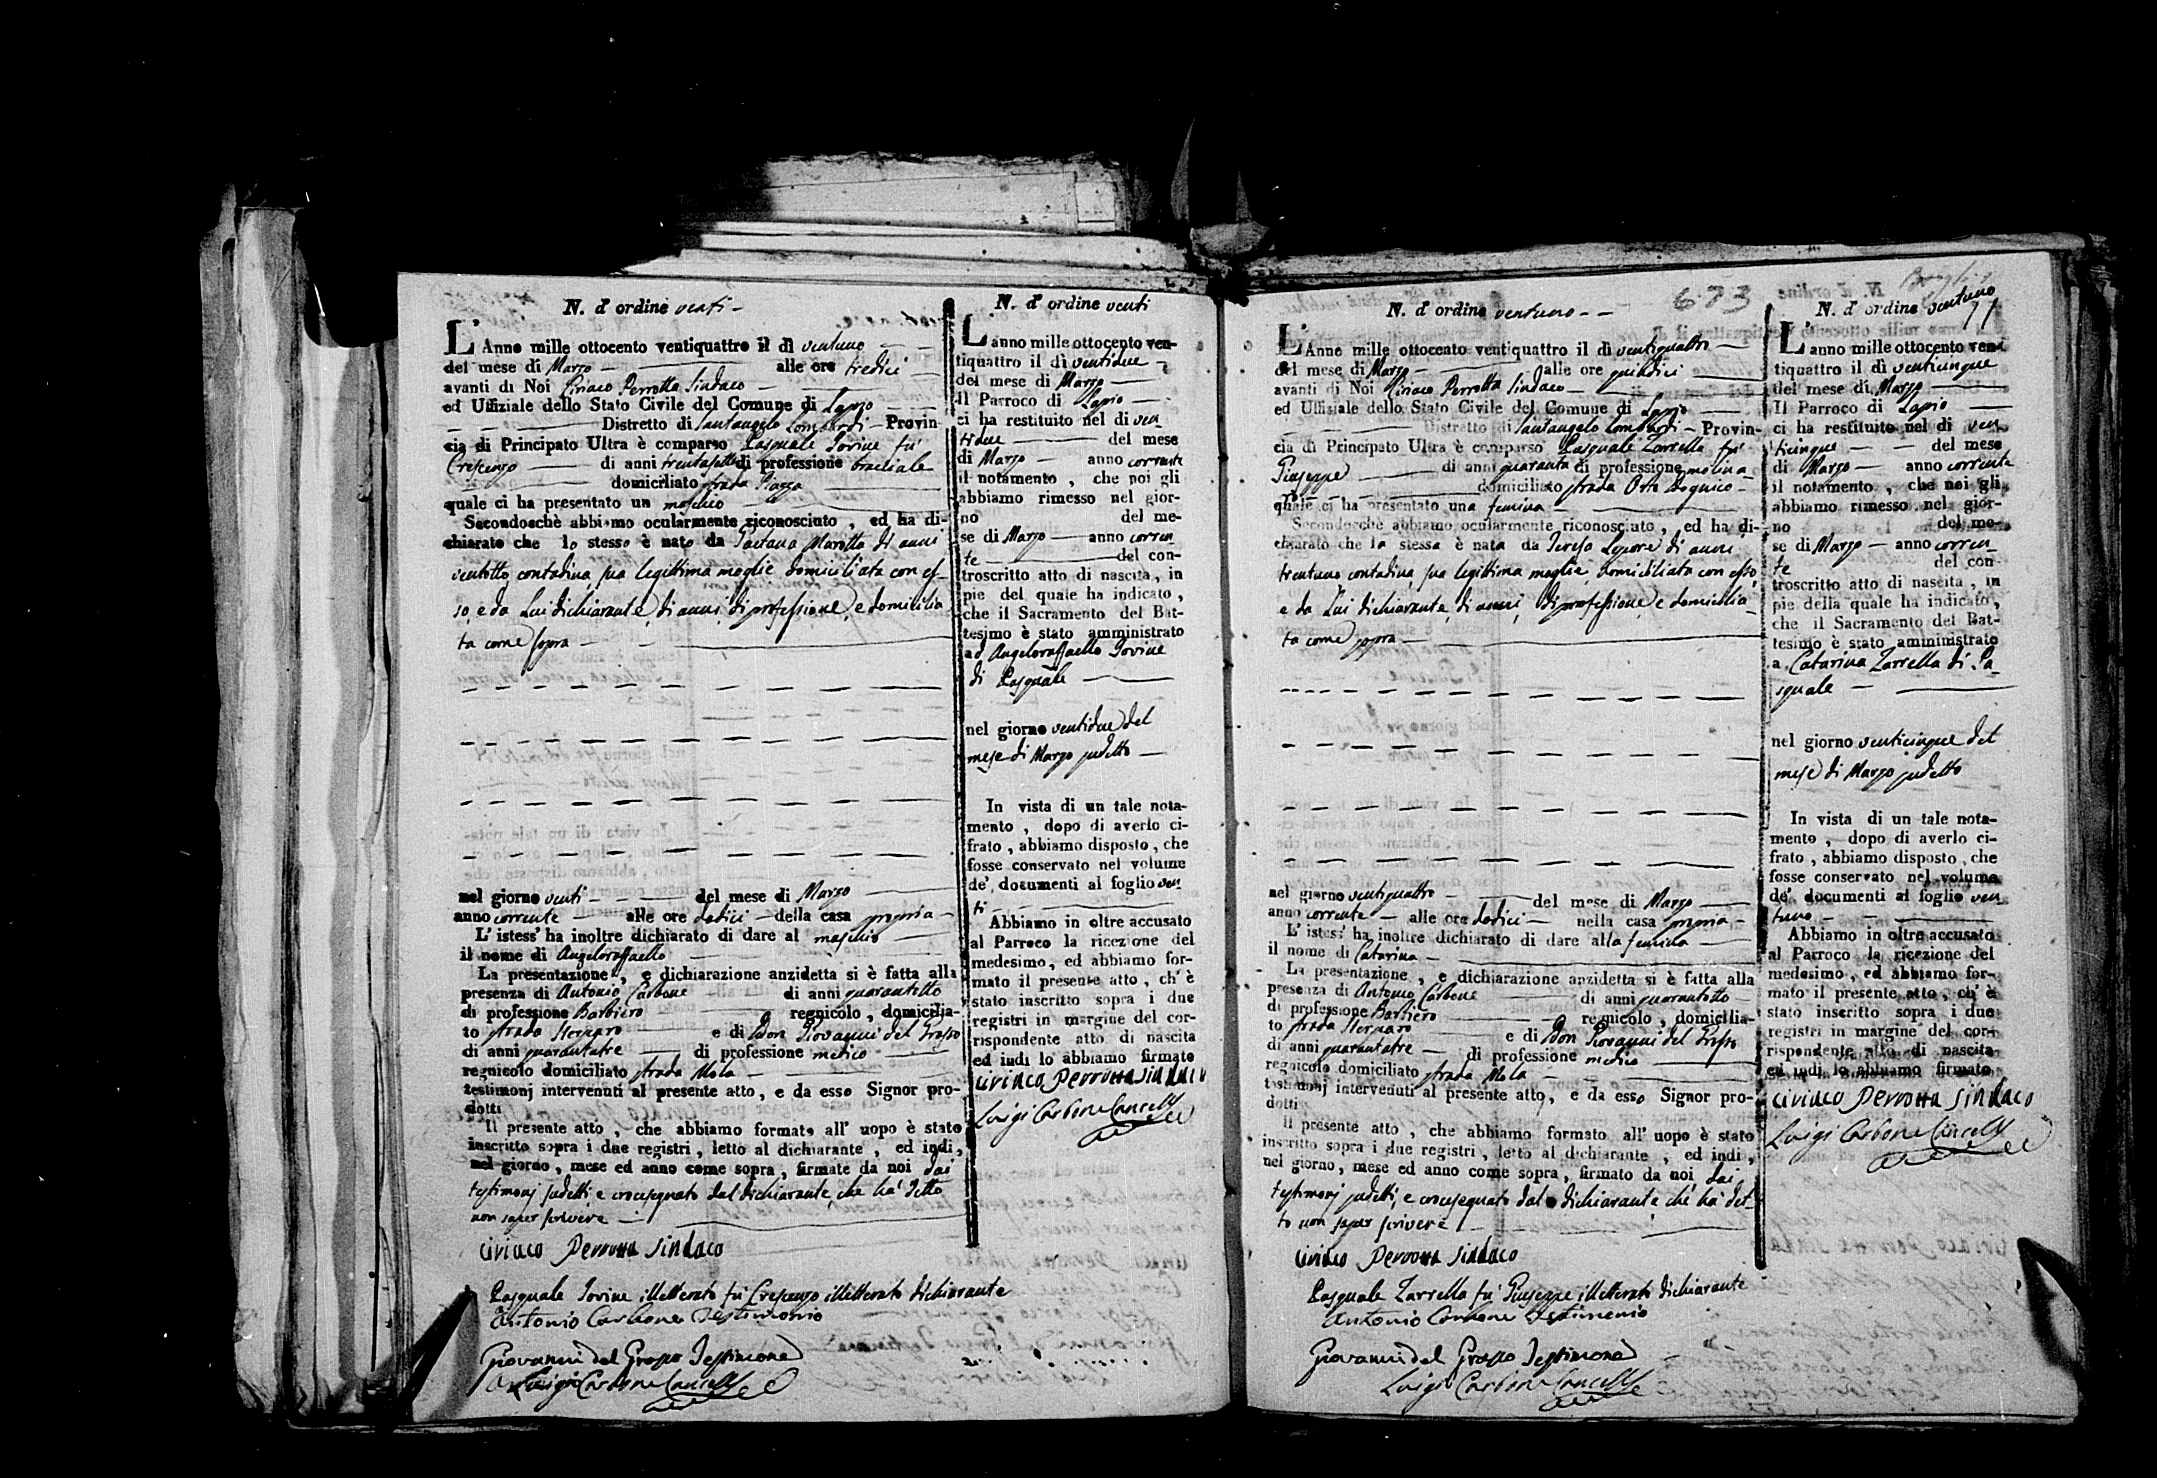 N. d' ordine venti -
L' Anno mille ottocento ventiquattro il dì ventuno
del mese di Marzo alle ore tredici
avanti di Noi Ciriaco Perrotta Sindaco
ed Uffiziale dello Stato Civile del Comune di Lapio
Distretto di Santangelo Lombardi - Provin-
cia di Principato Ultra è comparso Pasquale Iovine fu'
Crescenzo di anni trentasette di professione bracciale
domiciliato strada Piazza
quale ci ha presentato un maschio
Secondochè abbiamo ocularmente riconosciuto, ed ha di-
chiarato che lo stesso è nato da Gaetana Marotta di anni
ventotto contadina sua legittima moglie domiciliata con es-
so, e da Lui dichiarante, di anni, di professione, e domicilia
ta come sopra
nel giorno venti del mese di Marzo
anno corrente alle ore dodici della casa propria
L' istess' ha inoltre dichiarato di dare al maschio
il nome di Angeloraffaello
La presentazione, e dichiarazione anzidetta si è fatta alla
presenza di Antonio Carbone di anni quarantotto
di professione Barbiero regnicolo, domicilia-
to strada e di Don Giovanni del Grosso
di anni quarantatre di professione medico
regnicolo domiciliato strada Mola
testimonj intervenuti al presente atto, e da esso Signor pro-
dotti
Il presente atto, che abbiamo formato all' uopo è stato
inscritto sopra i due registri, letto al dichiarante, ed indi,
nel giorno, mese ed anno come sopra, firmato da noi dai
testimonj sudetti, e crocesegnato dal dichiarante, che ha' detto
non saper scrivere
Ciriaco Perrotta Sindaco
Pasquale Iovine illetterato fu' Crescenzo illetterato dichiarante
Antonio Carbone Testimonio
Giovanni del Grosso Testimone
Luigi Carbone Cancelle
N. d' ordine venti
L' anno mille ottocento ven-
tiquattro il dì ventidue
del mese di Marzo
Il Parroco di Lapio
ci ha restituito nel dì ven
tidue del mese
di Marzo anno corrente
il notamento, che noi gli
abbiamo rimesso nel gior-
no del me-
se di Marzo anno corren
te del con-
troscritto atto di nascita, in
pie del quale ha indicato,
che il Sacramento del Bat-
tesimo è stato amministrato
ad Angeloraffaello Iovine
di Pasquale
nel giorno ventidue del
mese di Marzo sudetto
In vista di un tale nota-
mento, dopo di averlo ci-
frato, abbiamo disposto, che
fosse conservato nel volume
de' documenti al foglio ven
ti
Abbiamo in oltre accusato
al Parroco la ricezione del
medesimo, ed abbiamo for-
mato il presente atto, ch' è
stato inscritto sopra i due
registri in margine del cor-
rispondente atto di nascita
ed indi lo abbiamo firmato
Ciriaco Perrotta Sindaco
Luigi Carbone Cancelle
673
N. d' ordine ventuno - -
L' Anno mille ottocento ventiquattro il dì ventiquattro
del mese di Marzo alle ore quindici
avanti di Noi Ciriaco Perrotta Sindaco
ed Uffiziale dello Stato Civile del Comune di Lapio
Distretto di Santangelo Lombardi - Provin-
cia di Principato Ultra è comparso Pasquale Zarrella fu'
Giuseppe di anni quaranta di professione molina
domiciliato strada Orto
quale ci ha presentato una femina
Secondochè abbiamo ocularmente riconosciuto, ed ha di-
chiarato che la stessa è nata da Teresa Lepore di anni
trentuno contadina sua legittima moglie domiciliata con esso,
e da Lui dichiarante, di anni, di professione, e domicilia
ta come sopra
nel giorno ventiquattro del mese di Marzo
anno corrente alle ore dodici nella casa propria
L' istess' ha inoltre dichiarato di dare alla femina
il nome di Catarina
La presentazione, e dichiarazione anzidetta si è fatta alla
presenza di Antonio Carbone di anni quarantotto
di professione Barbiero regnicolo, domicilia-
to strada e di Don Giovanni del Grosso
di anni quarantatre di professione medico
regnicolo domiciliato strada Mola
testimonj intervenuti al presente atto, e da esso Signor pro-
dotti
Il presente atto, che abbiamo formato all' uopo è stato
inscritto sopra i due registri, letto al dichiarante, ed indi,
nel giorno, mese ed anno come sopra, firmato da noi, dai
testimonj sudetti, e crocesegnato dal dichiarante, che ha' det
to non saper scrivere
Ciriaco Perrotta Sindaco
Pasquale Zarrella fu' Giuseppe illetterato dichiarante
Antonio Carbone Testimonio
Giovanni del Grosso Testimone
Luigi Carbone Cancelle
N. d' ordine ventuno
L' anno mille ottocento ven-
tiquattro il dì venticinque
del mese di Marzo
Il Parroco di Lapio
ci ha restituito nel dì ven
ticinque del mese
di Marzo anno corrente
il notamento, che noi gli
abbiamo rimesso nel gior-
no del me-
se di Marzo anno corren
te del con-
troscritto atto di nascita, in
pie della quale ha indicato,
che il Sacramento del Bat-
tesimo è stato amministrato
a Catarina Zarrella di Pa
squale
nel giorno venticinque del
mese di Marzo sudetto
In vista di un tale nota-
mento, dopo di averlo ci-
frato, abbiamo disposto, che
fosse conservato nel volume
de' documenti al foglio ven
tuno
Abbiamo in oltre accusato
al Parroco la ricezione del
medesimo, ed abbiamo for-
mato il presente atto, ch' è
stato inscritto sopra i due
registri in margine del cor-
rispondente atto di nascita
ed indi lo abbiamo firmato
Ciriaco Perrotta Sindaco
Luigi Carbone Cancelle